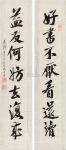 好書不厭看還讀
益友何妨去復來